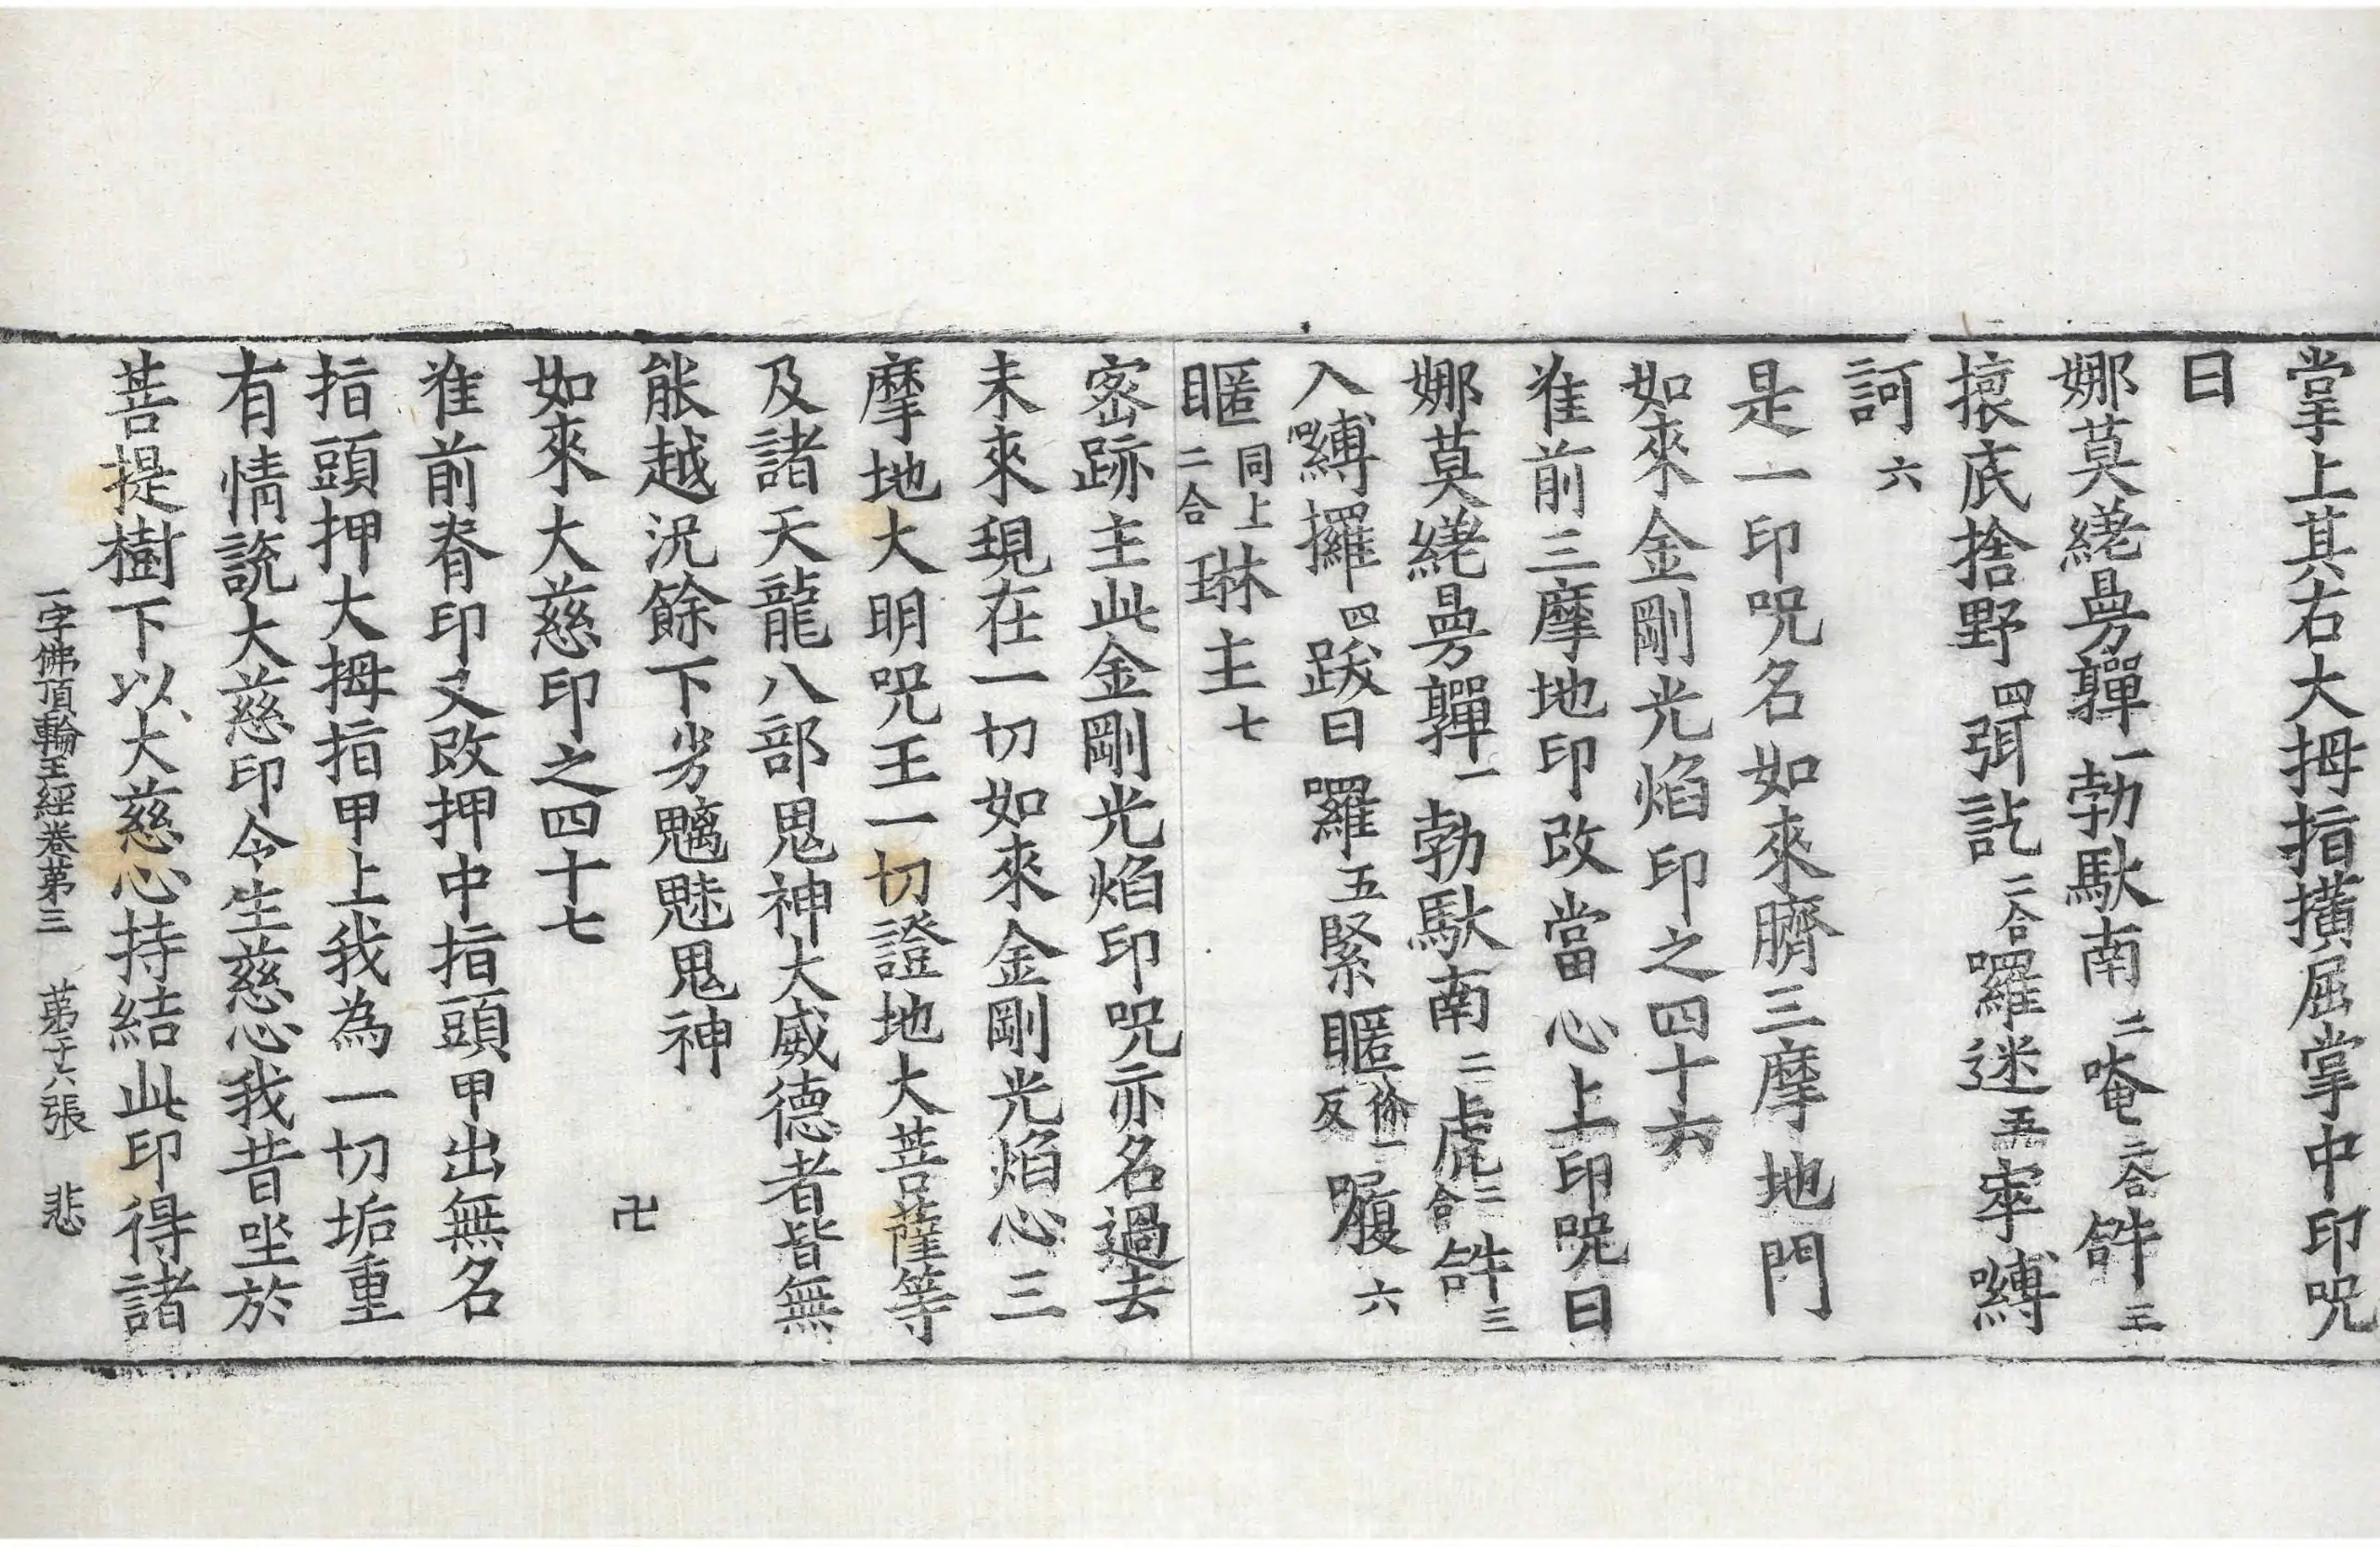 掌上其右大拇指撗屈掌中印呪
曰
娜莫繞曼嚲一勃馱南二唵二合𤙖三
㨱底捨野四弭訖二合囉迷五窣嚩
訶六
是一印呪名如來臍三摩地門
如來金剛光焰印之四十六
准前三摩地印改當心上印呪曰
娜莫繞曼嚲一勃馱南二虎二合𤙖三
入嚩攞四跋日囉五緊𭿇條一反履六
𭿇同上二合琳主七
密跡主此金剛光焰印呪亦名過去
未來現在一切如來金剛光焰心三
摩地大明呪王一切證地大菩薩等
及諸天龍八部鬼神大威德者皆無
能越況餘下劣魑魅鬼神
卍
如來大慈印之四十七
准前脊印又改押中指頭甲出無名
指頭押大拇指甲上我為一切垢重
有情說大慈印令生慈心我昔坐於
菩提樹下以大慈心持結此印得諸
一字佛頂輪王經卷第三 第十六張 悲